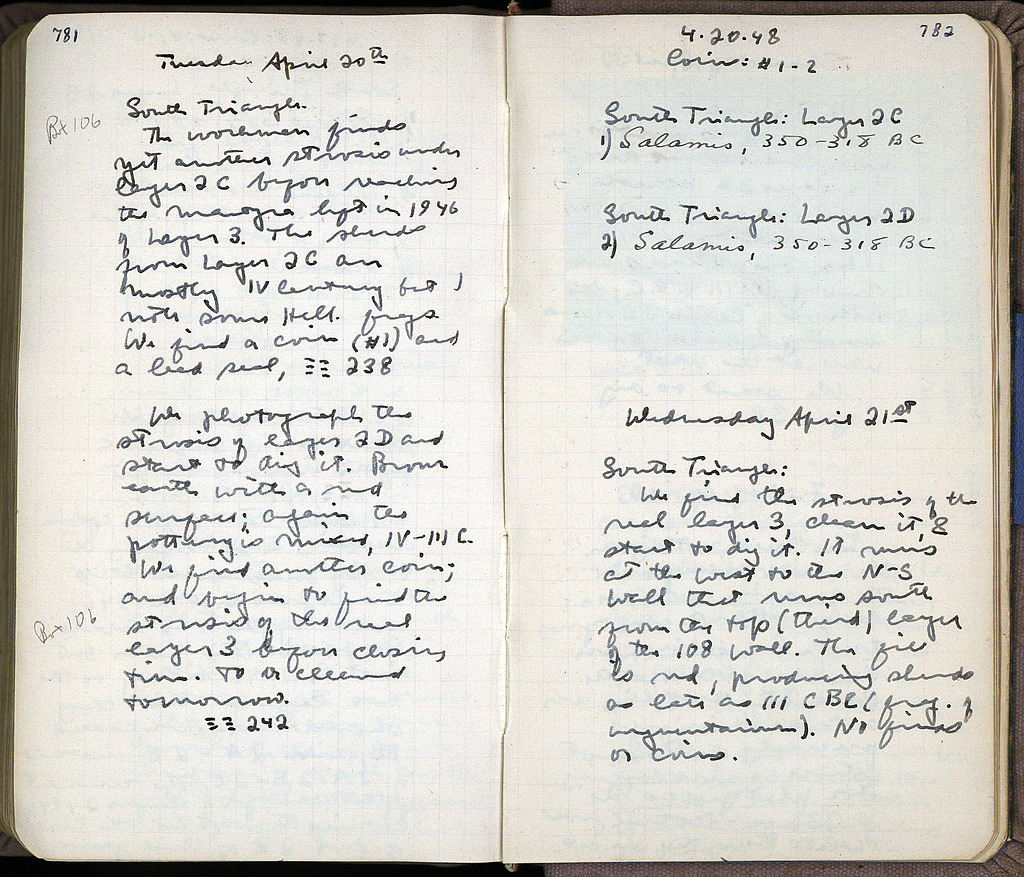 781
Tuesday April 20th
South Triangle.
Bx 106
The workman finds
yet another strosis under
layer 2C before reaching
the left in 1946
of Layer 3. The sherds
from Layer 2C are
mostly IV century but I
note some Hell. frags
We find a coin (#1) and
a lead seal, ΞΞ 238
We photograph the
strosis of layer 2D and
start to dig it. Brown
earth with a red
surface; again the
pottery is mixed, IV-III C.
We find another coin;
and begin to find the
Bx 106
strosis of the real
layer 3 before closing
time. To be cleaned
tomorrow.
ΞΞ 242
782
4.20.48
Coins: #1-2
South Triangle: Layer 2C
1) Salamis, 350-318 BC
South Triangle: Layer 2D
2) Salamis, 350-318 BC
Wednesday April 21st
South Triangle:
We find the strosis of the
real layer 3, clean it, &
start to dig it. It runs
at the west to the N-S
wall that runs south
from the top (third) layer
of the 108 wall. The fill
is red, producing sherds
as late as III C BC (frag. of
unguentarium). No finds
or coins.